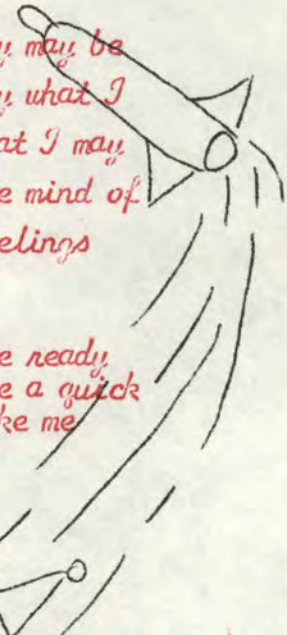 y may be
y what I
at I may
e mind of
elings
e ready
e a quick
ke me